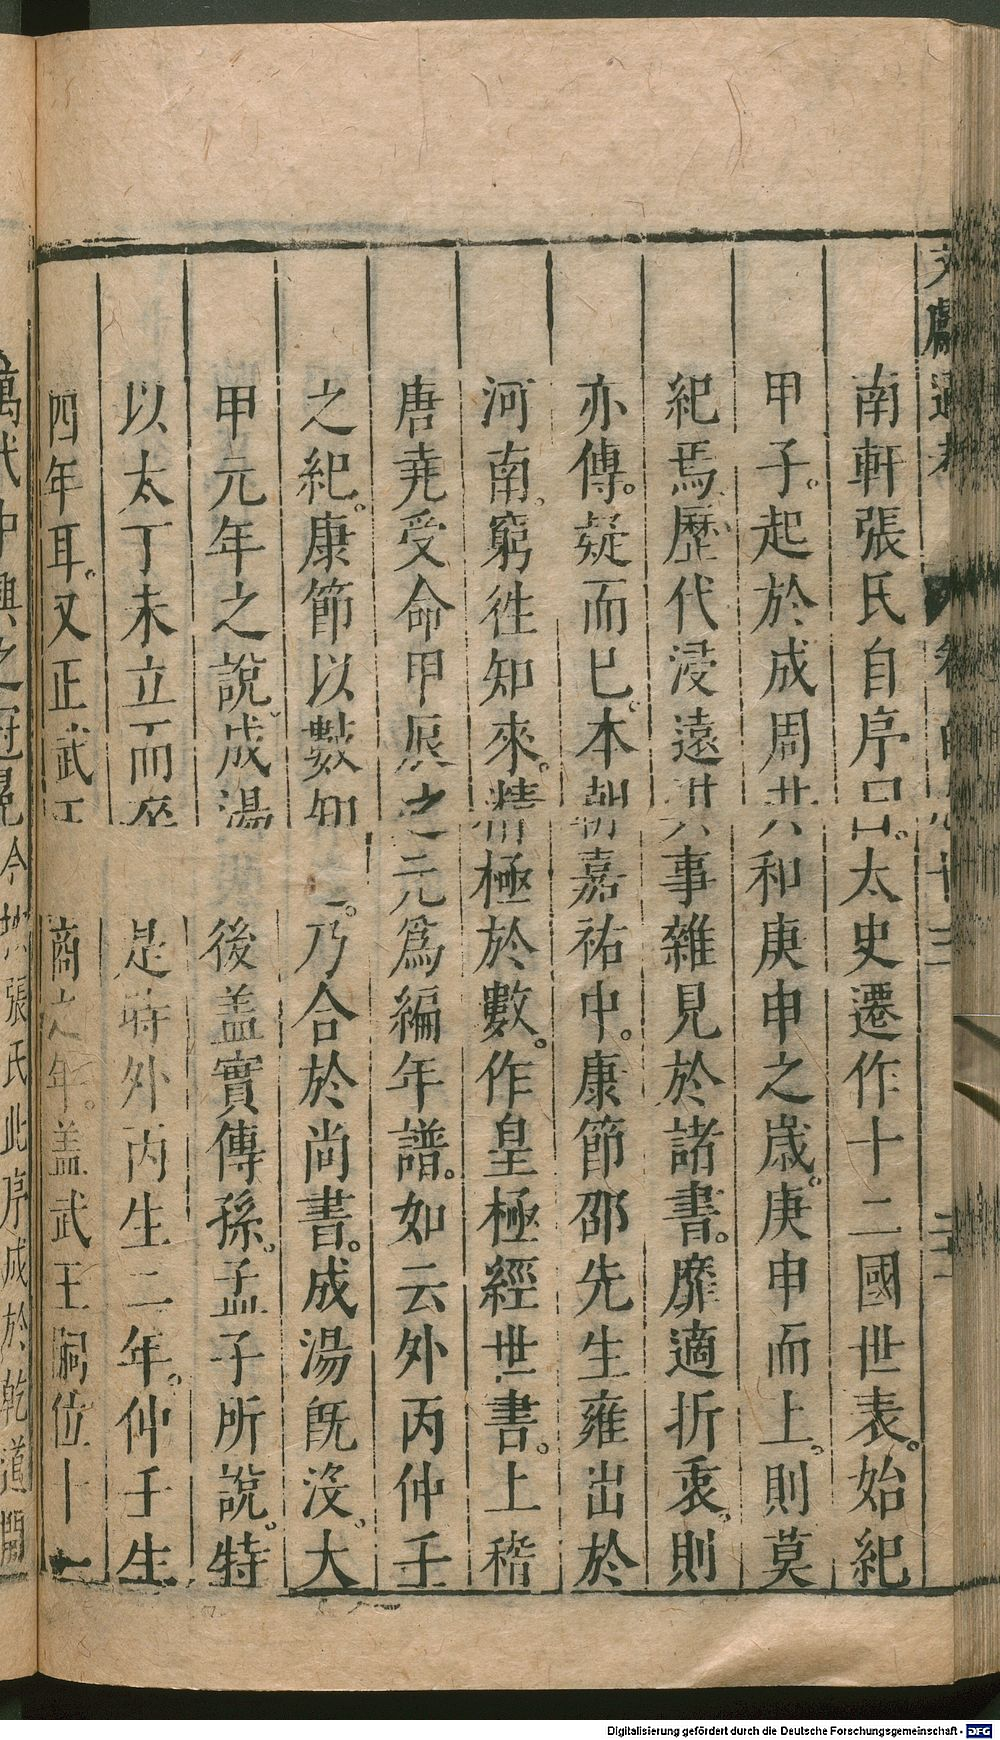 文獻通考 卷百九十三
南軒張氏自序曰。太史遷作十二國世表。始紀
甲子。起於成周共和庚申之歲。庚申而上。則莫
紀焉。歷代浸遠其事雜見於諸書。靡適折衷。則
亦傳。疑而已。本朝嘉祐中。康節邵先生雍出於
河南。窮徃知來。精極於數。作皇極經世書。上稽
唐堯受命甲辰之元爲編年譜。如云外丙仲壬
之紀。康節以數知之。乃合於尚書。成湯旣沒。大
甲元年之說。成湯 後盖實傳孫。孟子所說。特
以太丁未立而卒 是時外丙生二年。仲壬生
四年耳。又正武王 商之年。盖武王嗣位十一
萬代中興之冠冕今按張氏此序成於乾道閒
Digitalisierung gefördert durch die Deutsche Forschungsgemeinschaft - DFG